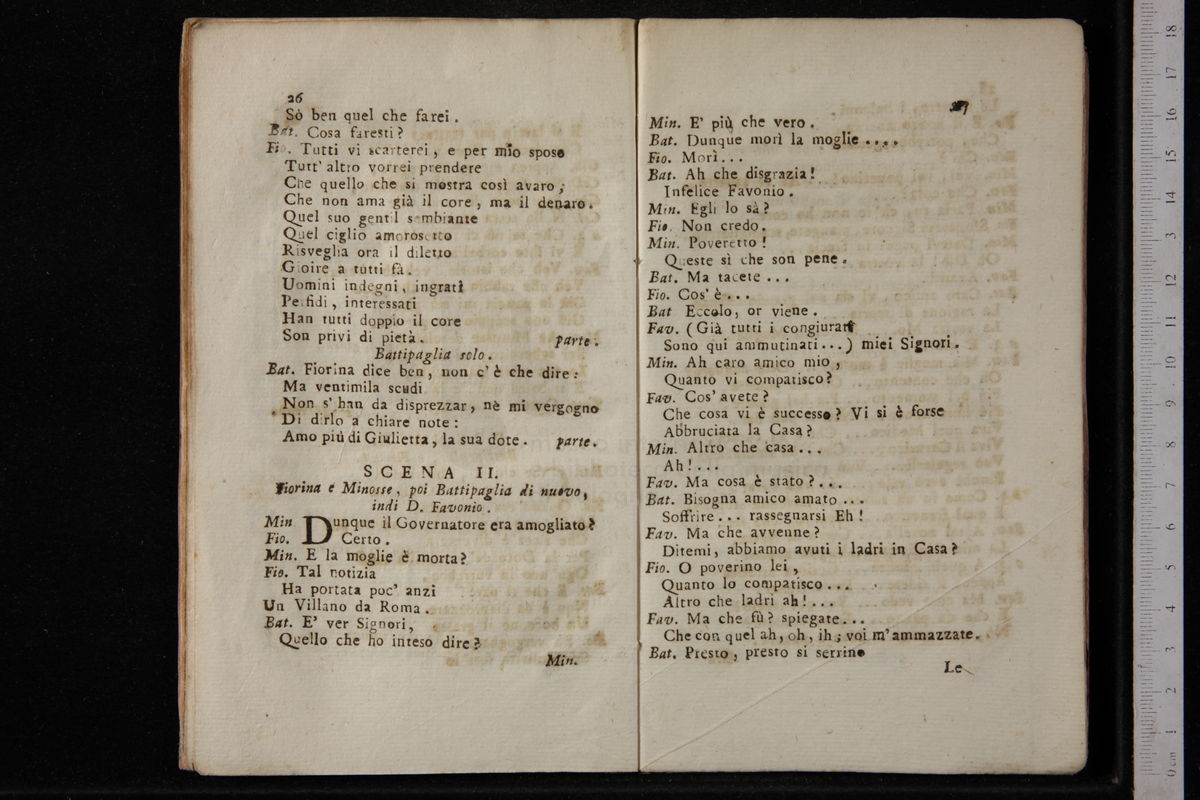 26
Sò ben quel che farei.
Bat. Cosa faresti?
Fio. Tutti vi scarterei, e per mio sposo
Tutt' altro vorrei prendere
Che quello che si mostra così avaro;
Che non ama già il core, ma il denaro.
Quel suo gentil sembiante
Quel ciglio amorosetto
Risveglia ora il diletto
Gioire a tutti fà.
Uomini indegni, ingrati
Perfidi, interessati
Han tutti doppio il core
Son privi di pietà. parte.
Battipaglia solo.
Bat. Fiorina dice ben, non c'è che dire:
Ma ventimila scudi
Non s'han da disprezzar, nè mi vergogno
Di dirlo a chiare note:
Amo più di Giulietta, la sua dote. parte.
SCENA II.
Fiorina e Minosse, poi Battipaglia di nuovo,
indi D. Favonio.
Min Dunque il Governatore era amogliato?
Fio. Certo.
Min. E la moglie è morta?
Fio. Tal notizia
Ha portata poc' anzi
Un Villano da Roma.
Bat. E' ver Signori,
Quello che ho inteso dire?
Min.
27
Min. E' più che vero.
Bat. Dunque morì la moglie ....
Fio. Morì...
Bat. Ah che disgrazia!
Infelice Favonio.
Min. Egli lo sà?
Fio. Non credo.
Min. Poveretto!
Queste sì che son pene.
Bat. Ma tacete ...
Fio. Cos' è ...
Bat Eccolo, or viene.
Fav. (Già tutti i congiurati
Sono qui ammutinati...) miei Signori.
Min. Ah caro amico mio,
Quanto vi compatisco?
Fav. Cos' avete?
Che cosa vi è successo? Vi si è forse
Abbruciata la Casa?
Min. Altro che casa...
Ah!...
Fav. Ma cosa è stato?...
Bat. Bisogna amico amato ...
Soffrire... rassegnarsi Eh!
Fav. Ma che avvenne?
Ditemi, abbiamo avuti i ladri in Casa?
Fio. O poverino lei,
Quanto lo compatisco...
Altro che ladri ah!...
Fav. Ma che fù? spiegate...
Che con quel ah, oh, ih; voi m'ammazzate.
Bat. Presto, presto si serrino
Le